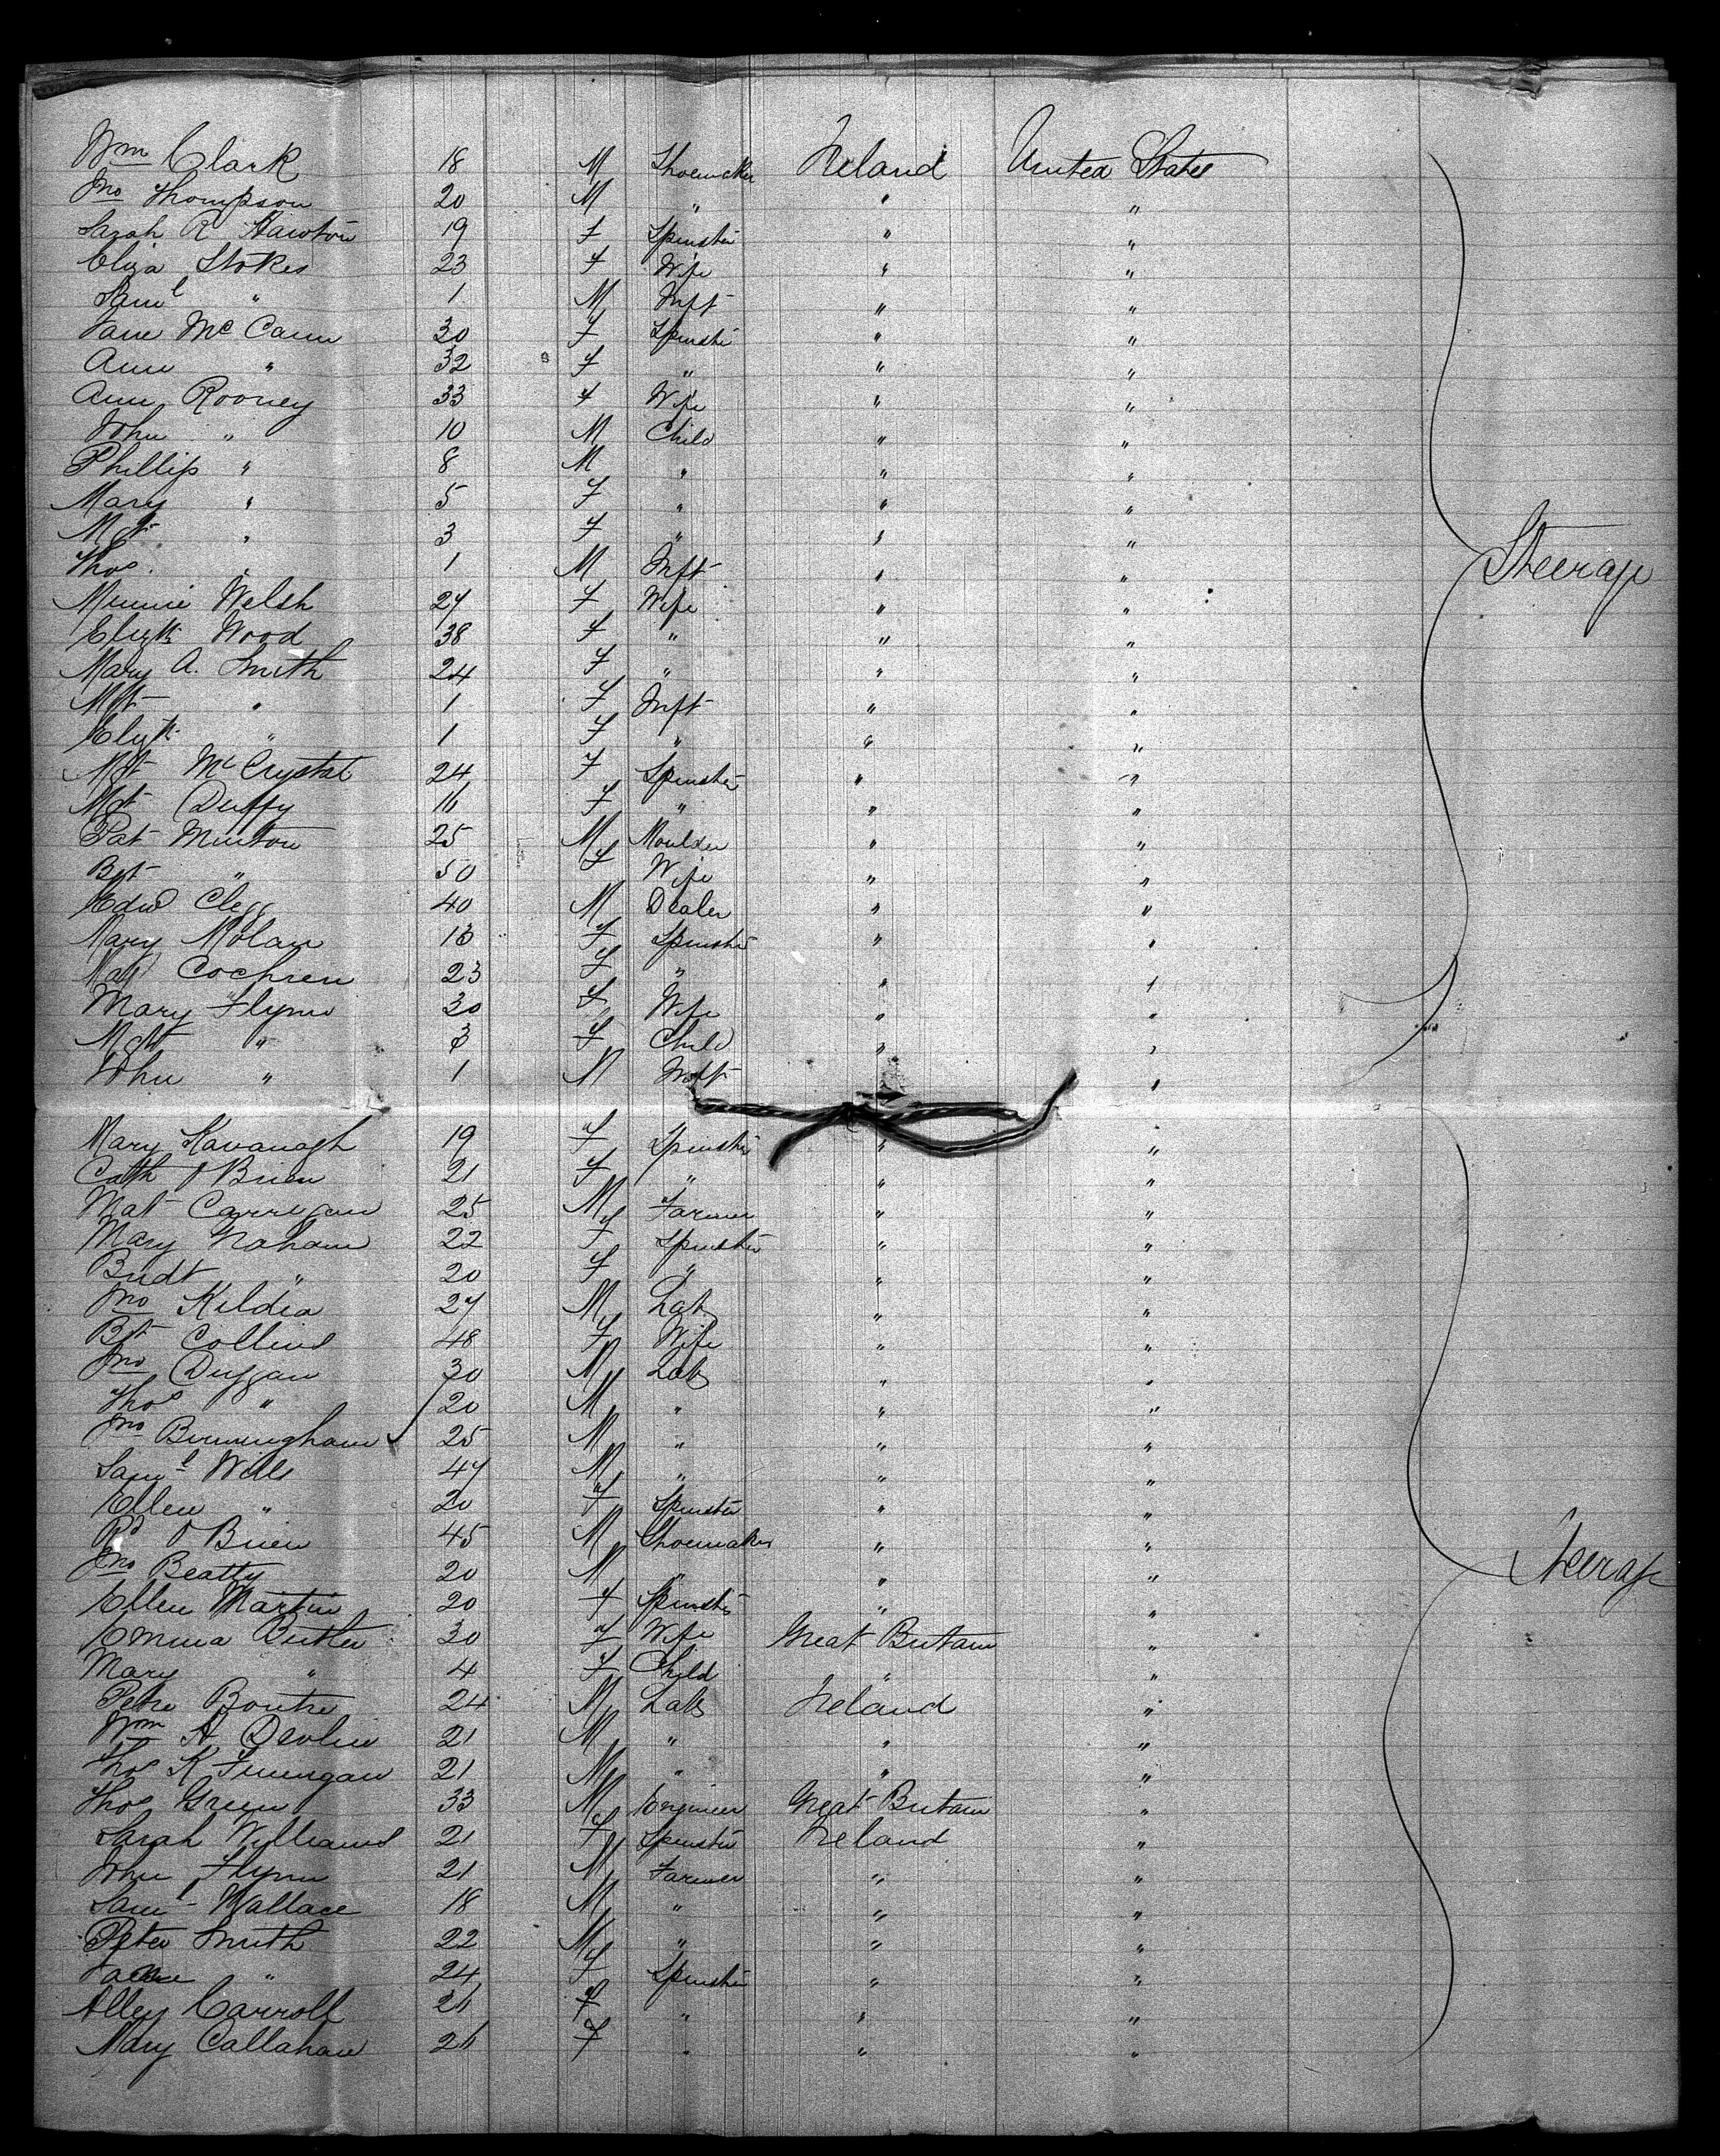 Wm Clark 18 M Shoemaker Ireland United States
Jno Thompson 20 M " " "
Sarah R Hawton 19 F Spinster " "
Eliza Stokes 23 F Wife " "
Saml " 1 M Inft " "
Jane McCann 30 F Spinster " "
Ann " 32 F " " "
Ann Rooney 33 F Wife " "
John " 10 M Child " "
Phillip " 8 M " " "
Mary " 5 F " " "
Mgt " 3 F " " " Steerage
Thos " 1 M Inft " "
Minnie Welsh 27 F Wife " "
Elizth Wood 38 F " " "
Mary A. Smith 24 F " " "
Mgt " 1 F Inft " "
Elizth " 1 F " " "
Mgt McCrystal 24 F Spinster " "
Mgt Duffy 16 F " " "
Pat Minton 25 M Moulder " "
Bgt " 50 F Wife " "
Edwd Clegg 40 M Dealer " "
Mary Nolan F Spinster " "
Cochren 23 F " " "
Mary Flynn 30 F Wife " "
Mgt " 3 F Child " "
John " 1 M Inft " "
Mary Kavanagh 19 F Spinster " "
Cath O'Brien 21 F " " "
Mat Carrigan 25 M Farmer " "
Mary Nahan 22 F Spinster " "
Bridt " 20 F " " "
Jno Kildea 27 M Lab " "
Bgt Collins 48 F Wife " "
Jno Duggan 30 M Lab " "
Thos " 20 M " " "
Jno Birmingham 25 M " " "
Saml Wills 47 M " " "
Ellen " 20 F Spinster " "
Rd O'Brien 45 M Shoemaker " "
Jno Beatty 20 M " " " Steerage
Ellen Martin 20 F Spinster " "
Emma Butler 30 F Wife Great Britain "
Mary " 4 F Child " "
Peter 24 M Lab Ireland "
Wm H Devlin 21 M " " "
Thos K Finnegan 21 M " " "
Thos Green 33 M Engineer Great Britain "
Sarah Williams 21 F Spinster Ireland "
John Flynn 21 M Farmer " "
Saml Wallace 18 M " " "
Peter Smith 22 M " " "
" 24 F Spinster " "
Alley Carroll 21 F " " "
Mary Callahan F " " "